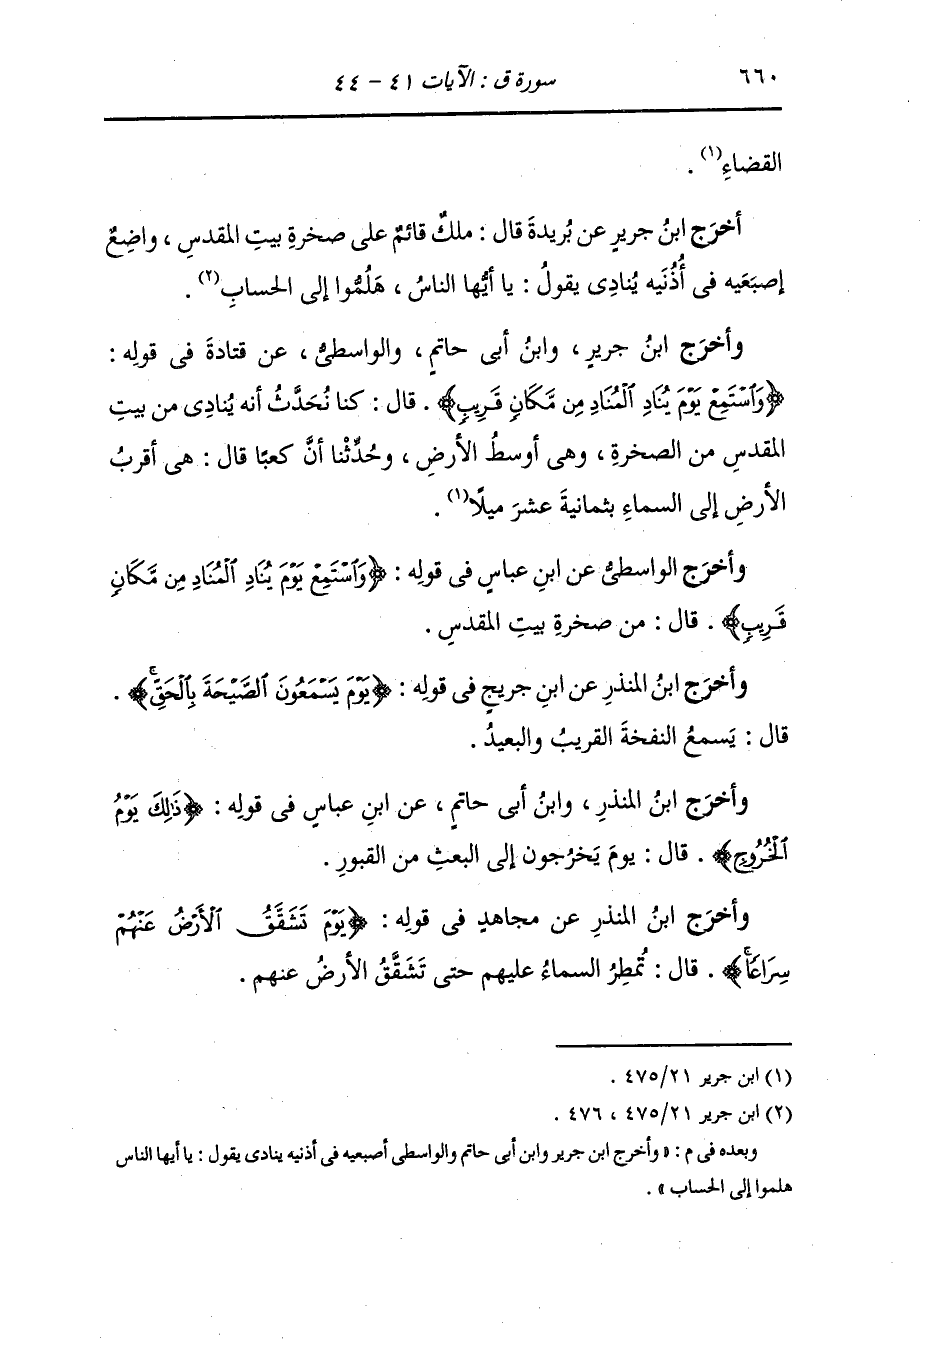 ٦٦٠
سورة ق : الآيات ٤١ - ٤٤
القضاءِ(١) .
أخرَج ابنُ جريرٍ عن بُريدةَ قال : ملكٌ قائمٌ على صخرةِ بيتِ المقدسِ ، واضِعٌ
إصبَعَيه فى أُذُنَيه يُنادِى يقولُ : يا أيُّها الناسُ ، هَلُمُّوا إلى الحسابِ(٢) .
وأخرَج ابنُ جريرٍ ، وابنُ أبى حاتمٍ ، والواسطىُّ ، عن قتادةَ فى قولِه :
﴿وَٱسْتَمِعْ يَوْمَ يُنَادِ ٱلْمُنَادِ مِن مَّكَانٍ قَرِيبٍ﴾ . قال : كنا نُحَدَّثُ أنه يُنادِى من بيتِ
المقدسِ من الصخرةِ ، وهى أوسطُ الأرضِ ، وحُدِّثْنا أنَّ كعبًا قال : هى أقربُ
الأرضِ إلى السماءِ بثمانيةَ عشرَ ميلًا(١) .
وأخرَج الواسطىُّ عن ابنِ عباسٍ فى قولِه : ﴿وَٱسْتَمِعْ يَوْمَ يُنَادِ ٱلْمُنَادِ مِن مَّكَانٍ
قَرِيبٍ﴾ . قال : من صخرةِ بيتِ المقدسِ .
وأخرَج ابنُ المنذرِ عن ابنِ جريجٍ فى قولِه : ﴿يَوْمَ يَسْمَعُونَ ٱلصَّيْحَةَ بِٱلْحَقِّۚ﴾ .
قال : يَسمعُ النفخةَ القريبُ والبعيدُ .
وأخرَج ابنُ المنذرِ ، وابنُ أبى حاتمٍ ، عن ابنِ عباسٍ فى قولِه : ﴿ذَٰلِكَ يَوْمُ
ٱلْخُرُوجِ﴾ . قال : يومَ يَخرُجون إلى البعثِ من القبورِ .
وأخرَج ابنُ المنذرِ عن مجاهدٍ فى قولِه : ﴿يَوْمَ تَشَقَّقُ ٱلْأَرْضُ عَنْهُمْ
سِرَاعًاۚ﴾ . قال : تُمطِرُ السماءُ عليهم حتى تَشَقَّقُ الأرضُ عنهم .
(١) ابن جرير ٤٧٥/٢١ .
(٢) ابن جرير ٤٧٥/٢١ ، ٤٧٦ .
وبعده فى م : « وأخرج ابن جرير وابن أبى حاتم والواسطى أصبعيه فى أذنيه ينادى يقول : يا أيها الناس
هلموا إلى الحساب » .